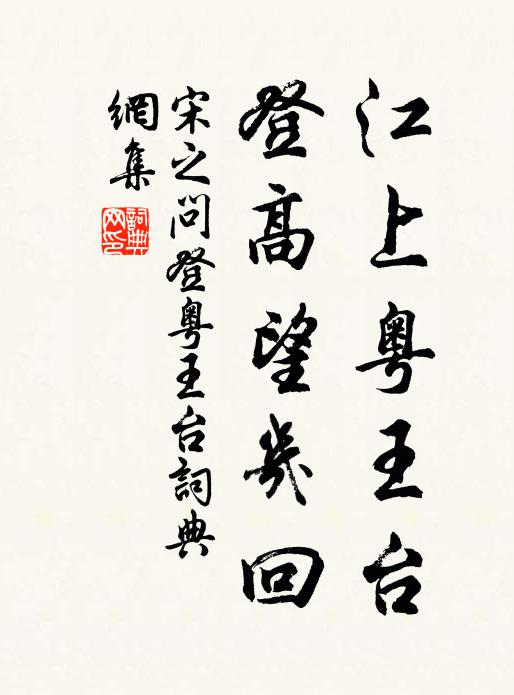 江上粤王台
登高望幾回
宋之问登粤王台詞典
網集
詞典网印